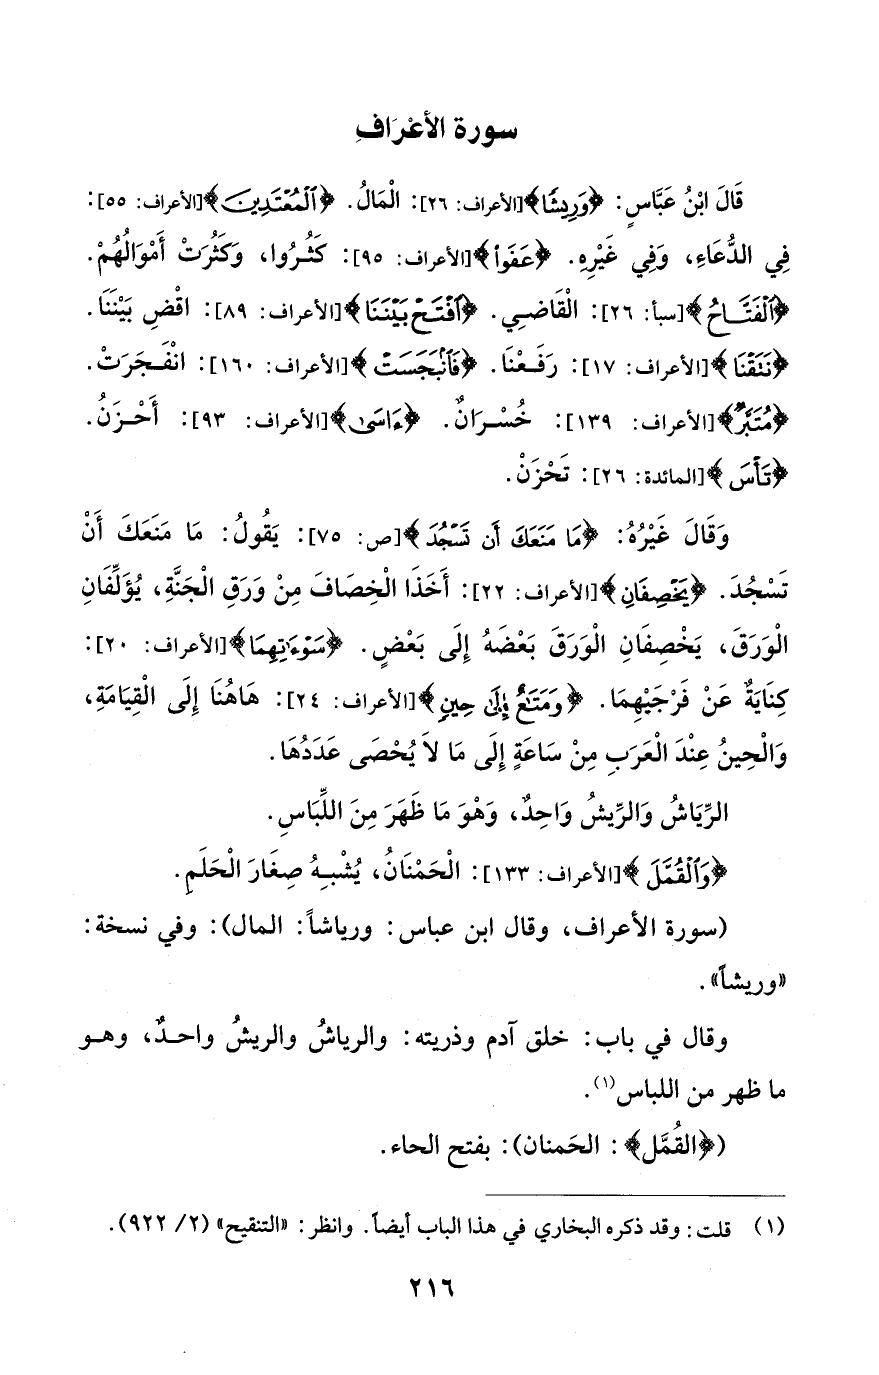 سورة الأَعْرَافِ
قَالَ ابْنُ عَبَّاسٍ: ﴿وَرِيشًا﴾[الأعراف: ٢٦]: الْمَالُ. ﴿الْمُعْتَدِينَ﴾[الأعراف: ٥٥]:
فِي الدُّعَاءِ، وَفِي غَيْرِهِ. ﴿عَفَوا﴾[الأعراف: ٩٥]: كَثُرُوا، وَكَثُرَتْ أَمْوَالُهُمْ.
﴿الْفَتَّاحُ﴾[سبأ: ٢٦]: الْقَاضِي. ﴿افْتَحْ بَيْنَنَا﴾[الأعراف: ٨٩]: اقْضِ بَيْنَنَا.
﴿نَتَقْنَا﴾[الأعراف: ١٧]: رَفَعْنَا. ﴿فَانْبَجَسَتْ﴾[الأعراف: ١٦٠]: انْفَجَرَتْ.
﴿مُتَبَّرٌ﴾[الأعراف: ١٣٩]: خُسْرَانٌ. ﴿ءَاسَى﴾[الأعراف: ٩٣]: أَحْزَنُ.
﴿تَأْسَ﴾[المائدة: ٢٦]: تَحْزَنْ.
وَقَالَ غَيْرُهُ: ﴿مَا مَنَعَكَ أَن تَسْجُدَ﴾[ص: ٧٥]: يَقُولُ: مَا مَنَعَكَ أَنْ
تَسْجُدَ. ﴿يَخْصِفَانِ﴾[الأعراف: ٢٢]: أَخَذَا الْخِصَافَ مِنْ وَرَقِ الْجَنَّةِ، يُؤَلِّفَانِ
الْوَرَقَ، يَخْصِفَانِ الْوَرَقَ بَعْضَهُ إِلَى بَعْضٍ. ﴿سَوْءَاتِهِمَا﴾[الأعراف: ٢٠]:
كِنَايَةٌ عَنْ فَرْجَيْهِمَا. ﴿وَمَتَاعٌ إِلَى حِينٍ﴾[الأعراف: ٢٤]: هَاهُنَا إِلَى الْقِيَامَةِ،
وَالْحِينُ عِنْدَ الْعَرَبِ مِنْ سَاعَةٍ إِلَى مَا لاَ يُحْصَى عَدَدُهَا.
الرِّيَاشُ وَالرِّيشُ وَاحِدٌ، وَهْوَ مَا ظَهَرَ مِنَ اللِّبَاسِ.
﴿وَالْقُمَّلَ﴾[الأعراف: ١٣٣]: الْحَمْنَانُ، يُشْبِهُ صِغَارَ الْحَلَمِ.
(سورة الأعراف، وقال ابن عباس: ورياشاً: المال): وفي نسخة:
«وريشاً».
وقال في باب: خلق آدم وذريته: والرياشُ والريشُ واحدٌ، وهو
ما ظهر من اللباس(١).
(﴿القُمَّل﴾: الحَمنان): بفتح الحاء.
(١) قلت: وقد ذكره البخاري في هذا الباب أيضاً. وانظر: «التنقيح» (٢/ ٩٢٢).
٢١٦